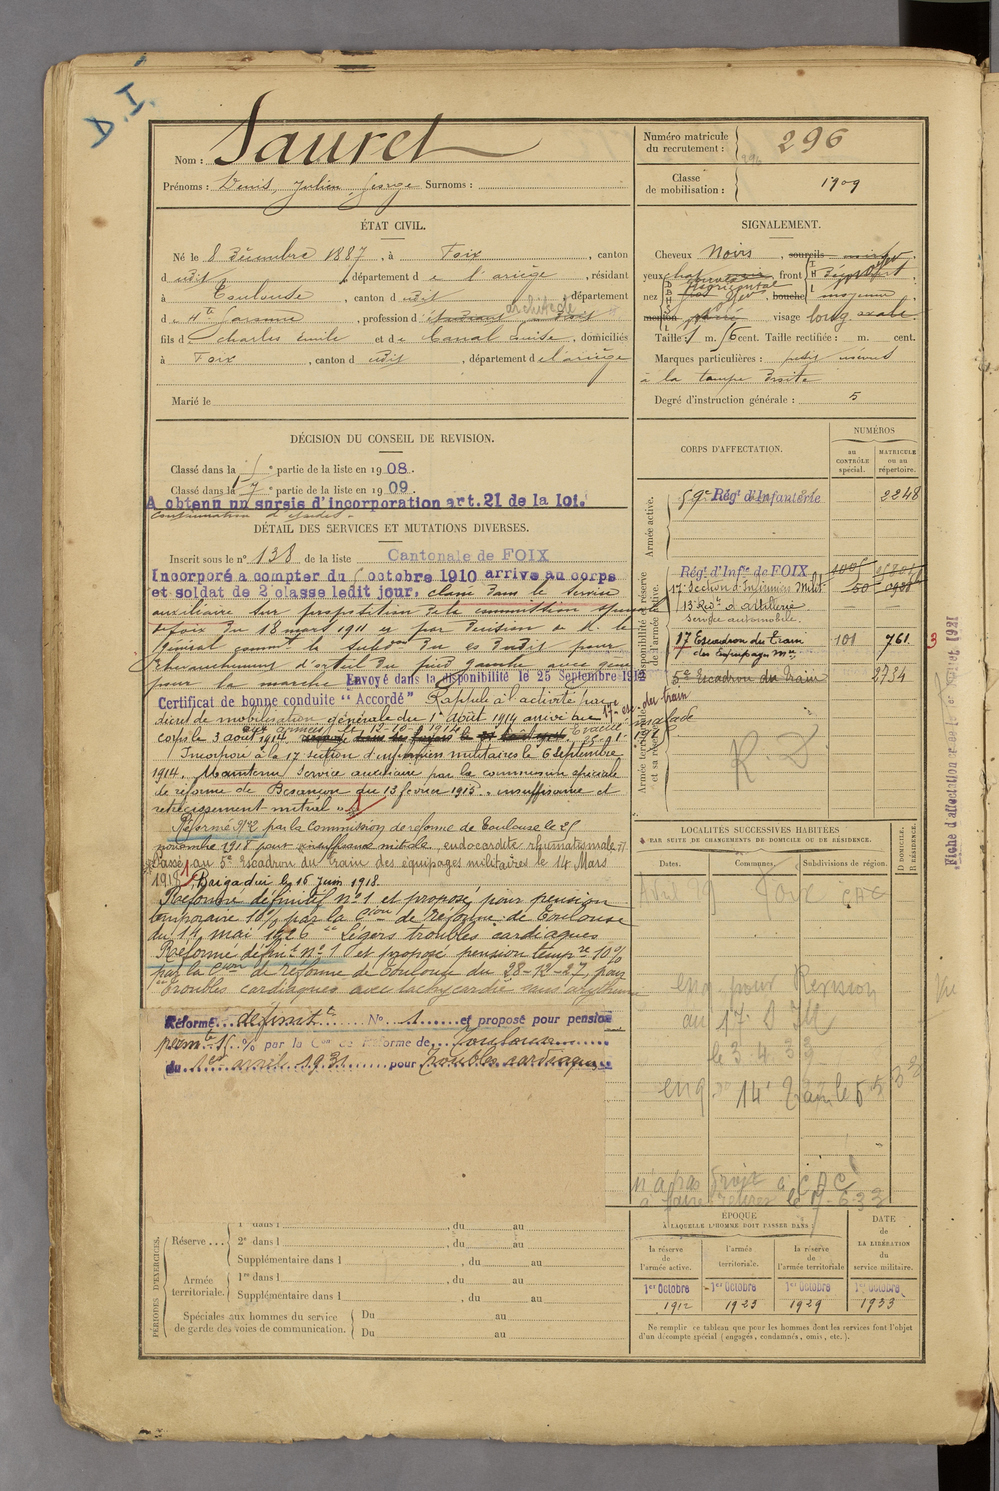 D.I.
Nom : Sauret
Prénoms : Denis, Julien George Surnoms :
Numéro matricule du recrutement : 296
Classe de mobilisation : 1909
ÉTAT CIVIL.
Né le 8 Décembre 1887, à Foix, canton
dudit, département de l'ariège, résidant
à Toulouse, canton dudit, département
d Hte Garonne, profession d'étudiant en droit architecte
fils de Charles Émile et de Canal Louise, domiciliés
à Foix, canton dudit, département de l'ariège
Marié le
SIGNALEMENT.
Cheveux Noirs, sourcils noirs
yeux front
nez bouche moyenne
menton visage long ovale
Taille : 1 m. 56 cent. Taille rectifiée : m. cent.
Marques particulières : petit
à la tempe droite
Degré d'instruction générale : 5
DÉCISION DU CONSEIL DE REVISION.
Classé dans la 5e partie de la liste en 1908.
Classé dans la 7e partie de la liste en 1909
A obtenu un sursis d'incorporation art. 21 de la loi.
DÉTAIL DES SERVICES ET MUTATIONS DIVERSES.
Inscrit sous le n° 138 de la liste Cantonale de FOIX
Incorporé a compter du 5 octobre 1910 arrivé au corps
et soldat de 2e classe ledit jour, classé dans le service
auxiliaire sur proposition de la commission spéciale
de foix du 18 mars 1911 et par décision de M. le
Général command. la subdon du es dudit pour
chevauchement d'orteil du pied gauche avec gêne
pour la marche Envoyé dans la disponibilité le 25 Septembre 1912
Certificat de bonne conduite "Accordé" Rappelé à l'activité par
décret de mobilisation générale du 1er Août 1914 arrivé au 17e esc. du train
corps le 3 août 1914 aux armées le 12-10-1914 Évacué malade
Incorporé à la 17 section d'infirmiers militaires le 6 Septembre
1914. Maintenu Service auxiliaire par la commission spéciale
de réforme de Besançon du 13 février 1915. "insuffisance et
rétrécissement mitral"
Réformé n°2 par la Commission de réforme de Toulouse le 25
novembre 1918 pour insuffisance mitrale, endocardite rhumatismale
Passé au 5e Escadron du Train des équipages militaires le 14 Mars
1918, Brigadier le 16 Juin 1918.
Réformé définitif n°1 et proposé pour pension
temporaire 10% par la Cion de réforme de Toulouse
du 14 mai 1926 Légers troubles cardiaques
Réformé définit. n° 1 et proposé pension tempre 10%
par la Cion de réforme de Toulouse du 28-12-27, pour
troubles cardiaques avec tachycardie sans arythmie
Réformé définitt N° 1 et proposé pour pension
permte 15 % par la Con de Réforme de Toulouse
du 1er avril 1931 pour troubles cardiaques
CORPS D'AFFECTATION.
NUMÉROS
AU CONTRÔLE spécial.
MATRICULE ou au répertoire.
Armée active.
59e Régt d'Infanterie 2248
Disponibilité et réserve de l'armée active.
Régt d'Infie de FOIX
17e Section d'Infirmiers Milit. 50
13 Redt d'artillerie
Service automobile.
17 Escadron du Train 101 761 3
des Équipages Mres
5e Escadron du Train 2734
Armée territoriale et sa réserve.
R.D
Fiche d'affectation
LOCALITÉS SUCCESSIVES HABITÉES
PAR SUITE DE CHANGEMENTS DE DOMICILE OU DE RÉSIDENCE.
Dates. Communes. Subdivisions de région. D DOMICILE. R RÉSIDENCE.
Avril 29 Foix CAC
enq. pour Revision
au 17e D
le 3.4.33
enq 14e Train le 5 5 33
n'a pas droit à CAC
ÉPOQUE
À LAQUELLE L'HOMME DOIT PASSER DANS :
la réserve de l'armée active. l'armée territoriale. la réserve de l'armée territoriale
DATE DE LA LIBÉRATION du service militaire.
1er Octobre 1er Octobre 1er Octobre 1er Octobre
1912 1923 1929 1933
Ne remplir ce tableau que pour les hommes dont les services font l'objet
d'un décompte spécial (engagés, condamnés, omis, etc.).
PÉRIODES D'EXERCICES.
Réserve ... 1 dans l , du au
2e dans l , du au
Supplémentaire dans l , du au
Armée territoriale. 1re dans l , du au
Supplémentaire dans l , du au
Spéciales aux hommes du service de garde des voies de communication. Du au
Du au